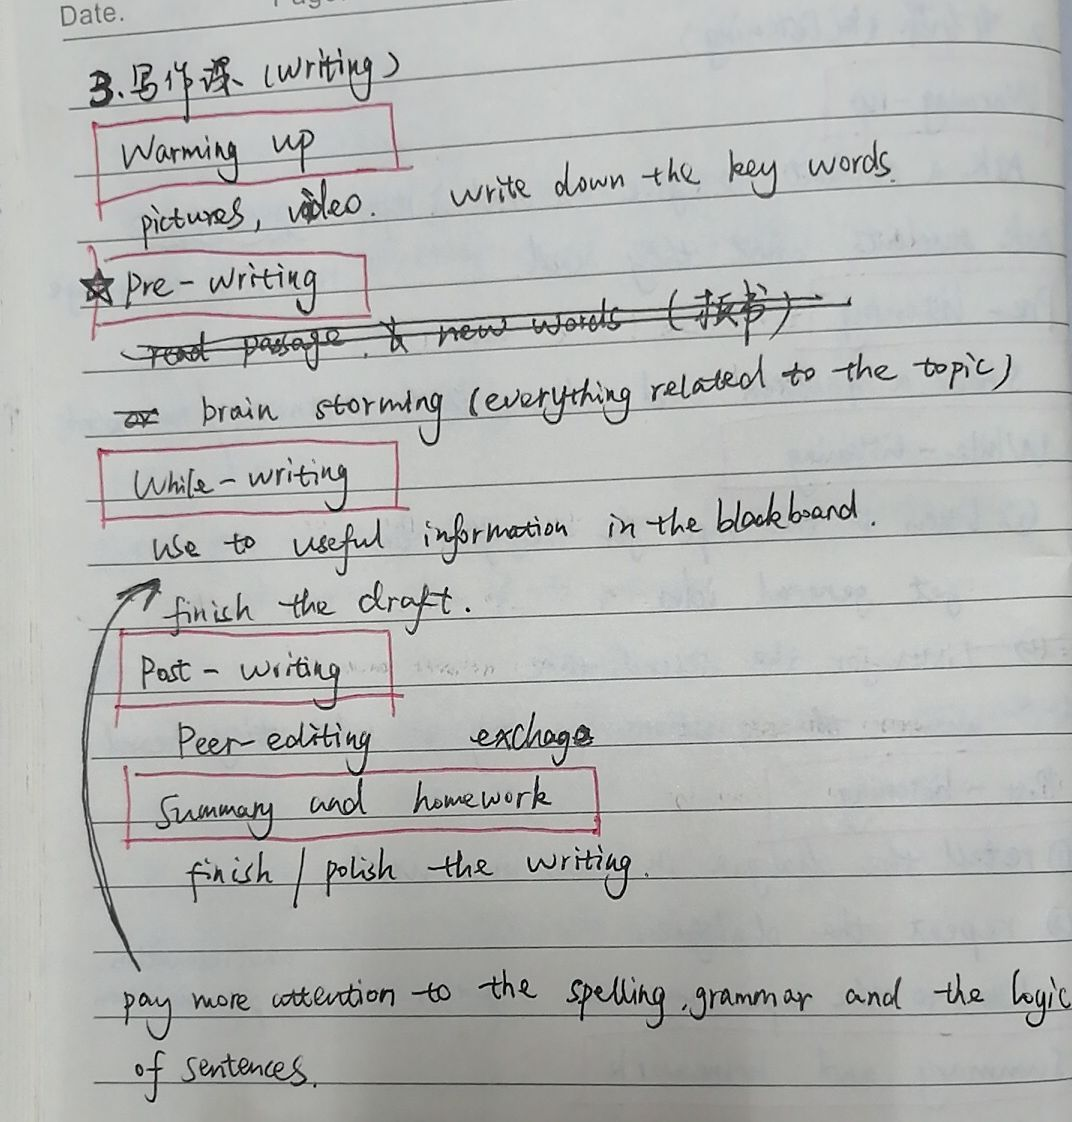 Date.
3.写作课 (writing)
Warming up
pictures, video. write down the key words.
☆ Pre-writing
read passage. & new words (板书)
or brain storming (everything related to the topic)
While-writing
use to useful information in the blackboard.
finish the draft.
Post-writing
Peer-editing exchage
Summary and homework
finish / polish the writing.
pay more attention to the spelling, grammar and the logic
of sentences.